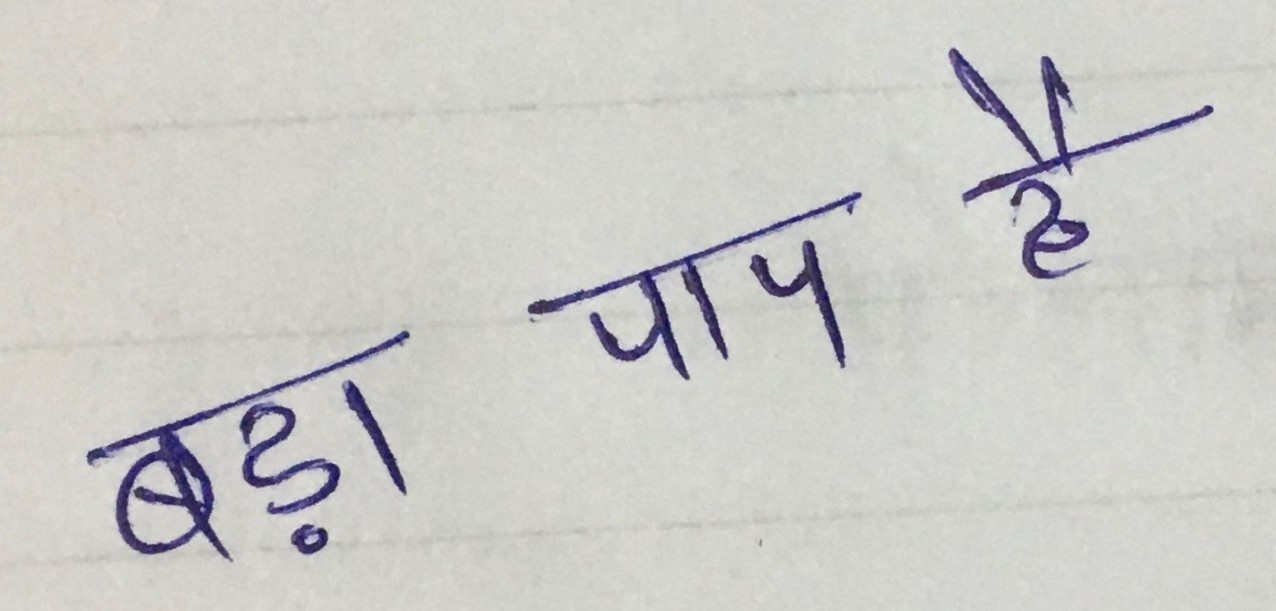 बड़ा पाप है